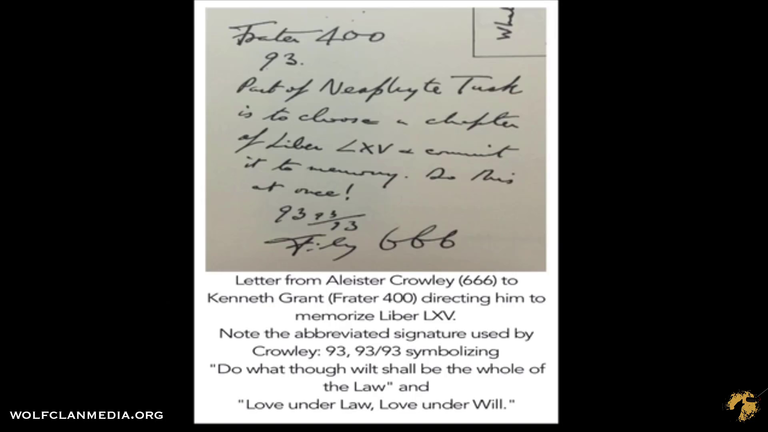 Frater 400
93.
Part of Neophyte Task
is to choose a chapter
of Liber LXV & commit
it to memory. Do this
at once!
93 93/93
666
Letter from Aleister Crowley (666) to
Kenneth Grant (Frater 400) directing him to
memorize Liber LXV.
Note the abbreviated signature used by
Crowley: 93, 93/93 symbolizing
"Do what though wilt shall be the whole of
the Law" and
"Love under Law, Love under Will."
WOLFCLANMEDIA.ORG